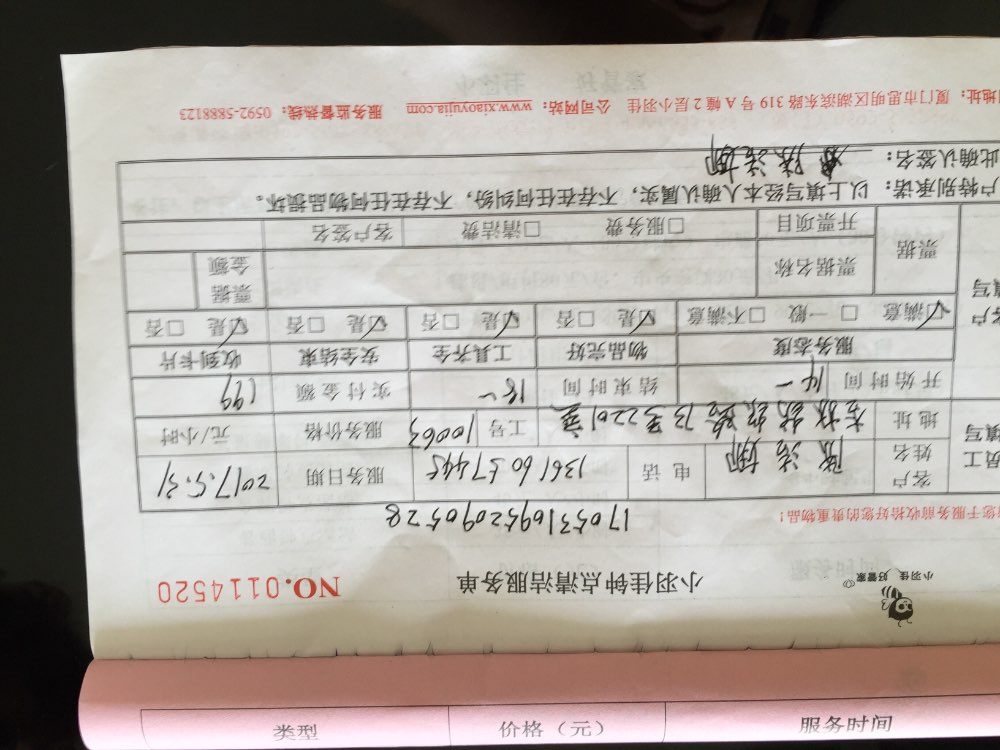 小羽佳 好管家
小羽佳钟点清洁服务单 NO.0114520
1705310952090528
您于服务前收拾好您的贵重物品!
客户姓名 陈 娜 电话 13616057445 服务日期 2017.5.31
地址 2201室 工号 10063 服务价格 元/小时
开始时间 14- 结束时间 18- 实付金额 199
服务态度 物品完好 工具齐全 安全结束 收到卡片
☑满意 □一般 □不满意 ☑是 □否 ☑是 □否 ☑是 □否 ☑是 □否
员工填写
客户填写
票据 票据名称 票据金额
开票项目 □服务费 □清洁费 客户签名
户特别承诺:以上填写经本人确认属实,不存在任何纠纷,不存在任何物品损坏。
此确认签名:陈 娜
司地址:厦门市思明区湖滨东路319号A幢2层小羽佳 公司网站:www.xiaoyujia.com 服务监督热线:0592-5888123
类型 价格(元) 服务时间